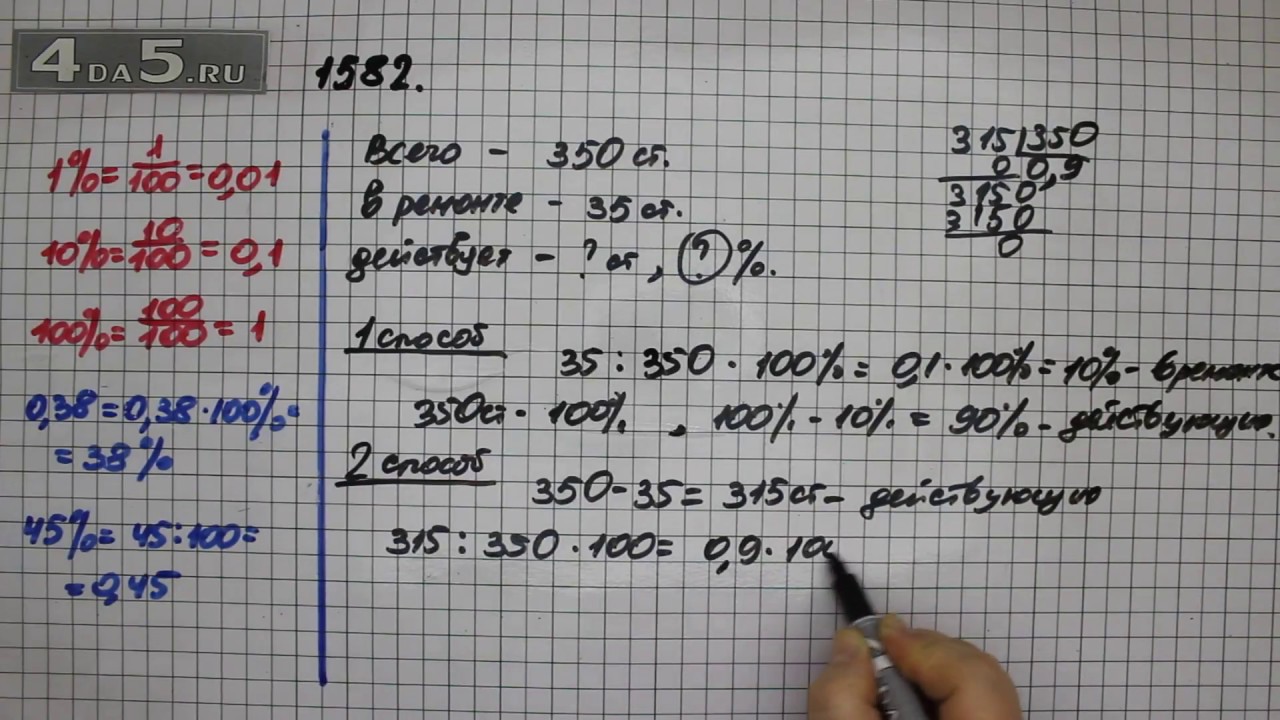 4DA5.RU
1582.
1% = 1/100 = 0,01
10% = 10/100 = 0,1
100% = 100/100 = 1
0,38 = 0,38 · 100% =
= 38%
45% = 45 : 100 =
= 0,45
Всего - 350 ст.
в ремонте - 35 ст.
действует - ? ст, ? %.
315 350
0 0,9
3150
3150
0
1 способ
35 : 350 · 100% = 0,1 · 100% = 10% - в ремонте
350 ст - 100% , 100% - 10% = 90% - действующие.
2 способ
350 - 35 = 315 ст - действующие
315 : 350 · 100 = 0,9 · 100